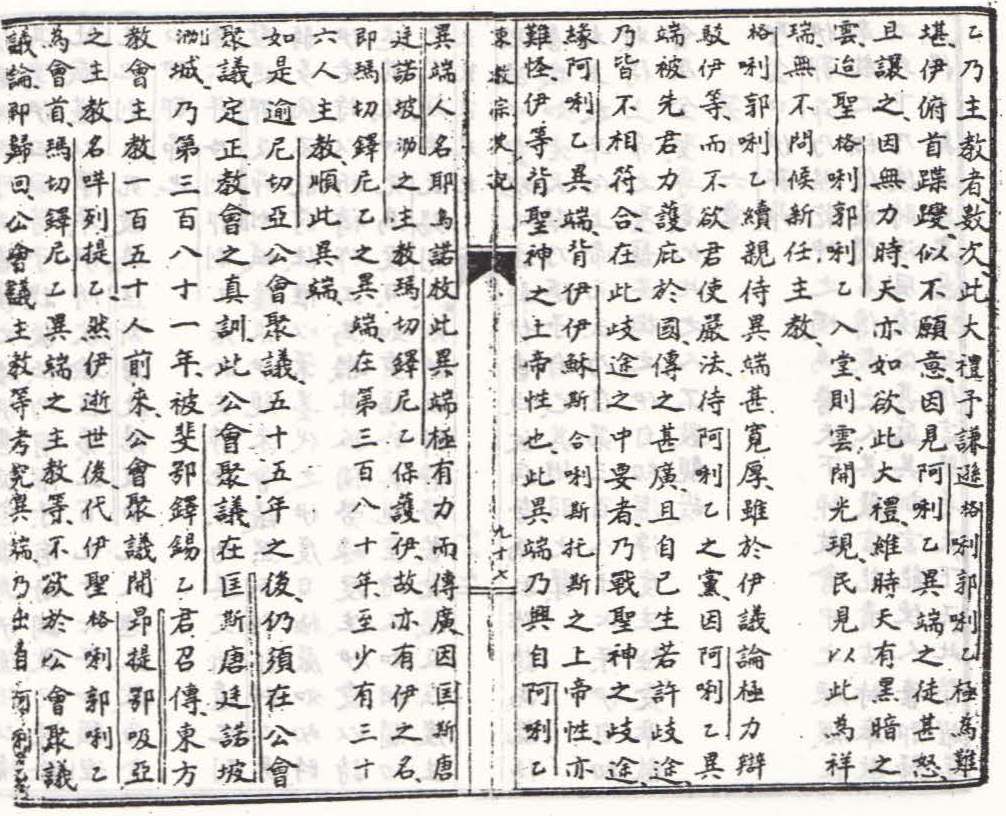 乙乃主教者、數次、此大禮予謙遜格唎郭唎乙極為難
堪、伊俯首蹀躞、似不願意、因見阿唎乙異端之徒甚怒、
且讓之、因無力時、天亦如欲此大禮、維時天有黑暗之
雲、迨聖格唎郭唎乙入堂、則雲開光現、民見以此為祥
瑞、無不問候新任主教、
格唎郭唎乙續親侍異端甚寬厚、雖於伊議論極力辯
駁伊等、而不欲君使嚴法侍阿唎乙之黨、因阿唎乙異
端、被先君力護庇於國、傳之甚廣、且自己生若許歧途、
乃皆不相符合、在此歧途之中要者、乃戰聖神之歧途、
緣阿唎乙異端、背伊伊穌斯合唎斯托斯之上帝性、亦
難怪、伊等背聖神之上帝性也、此異端乃興自阿唎乙
東教宗史記
九十七
異端人名耶烏諾枚、此異端極有力而傳廣、因匡斯唐
廷諾坡泐之主教瑪切鐸尼乙保護伊、故亦有伊之名、
即瑪切鐸尼乙之異端、在第三百八十年、至少有三十
六人主教、順此異端、
如是逾尼切亞公會聚議、五十五年之後、仍須在公會
聚議、定正教會之真訓、此公會聚議、在匡斯唐廷諾坡
泐城、乃第三百八十一年、被斐鄂鐸錫乙君召傳、東方
教會主教一百五十人前來、公會聚議、開昂提鄂吸亞
之主教名咩列提乙、然伊逝世後、代伊聖格唎郭唎乙
為會首、瑪切鐸尼乙異端之主教等、不欲於公會聚議
議論、即歸回、公會議主教等、考究異端、乃出自阿唎